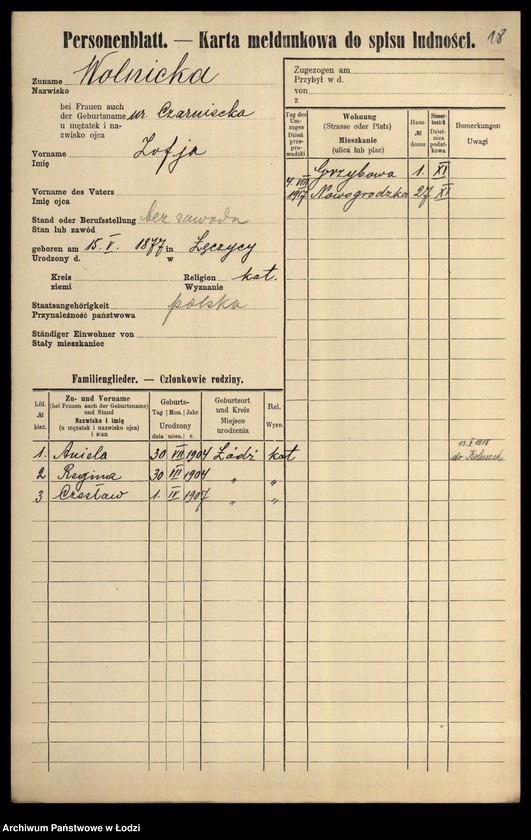 18
Personenblatt. — Karta meldunkowa do spisu ludności.
Zuname Wolnicka
Nazwisko
bei Frauen auch
der Geburtsname ur. Czarniecka
u mężatek i na-
zwisko ojca
Vorname Zofja
Imię
Vorname des Vaters
Imię ojca
Stand oder Berufsstellung bez zawodu
Stan lub zawód
geboren am 15. V. 1877 in Łęczycy
Urodzony d. w
Kreis Religion kat.
ziemi Wyznanie
Staatsangehörigkeit polska
Przynależność państwowa
Ständiger Einwohner von
Stały mieszkaniec
Zugezogen am
Przybył w d.
von
z
Tag des Um-zuges Dzień prze-prowadzki
Wohnung
(Strasse oder Platz)
Mieszkanie
(ulica lub plac)
Haus- № domu
Steuer-bezirk Dziel-nica podat-kowa
Bemerkungen
Uwagi
— Grzybowa 1. XI
4. VIII 1917 Nowogrodzka 27 XI
Familienglieder. — Członkowie rodziny.
Lfd. № bież.
Zu- und Vorname
(bei Frauen auch der Geburtsname)
und Stand
Nazwisko i imię
(u mężatek i nazwisko ojca)
i stan
Geburts-
Tag | Mon. | Jahr
Urodzony
dnia | mies. | r.
Geburtsort
und Kreis
Miejsce
urodzenia
Rel.
Wyzn.
1. Aniela 30 VII 1904 Łódź kat
2 Regina 30 III 1904 " "
3 Czesław 1. IV 1907 " "
13. X 1918
do Koluszek
Archiwum Państwowe w Łodzi